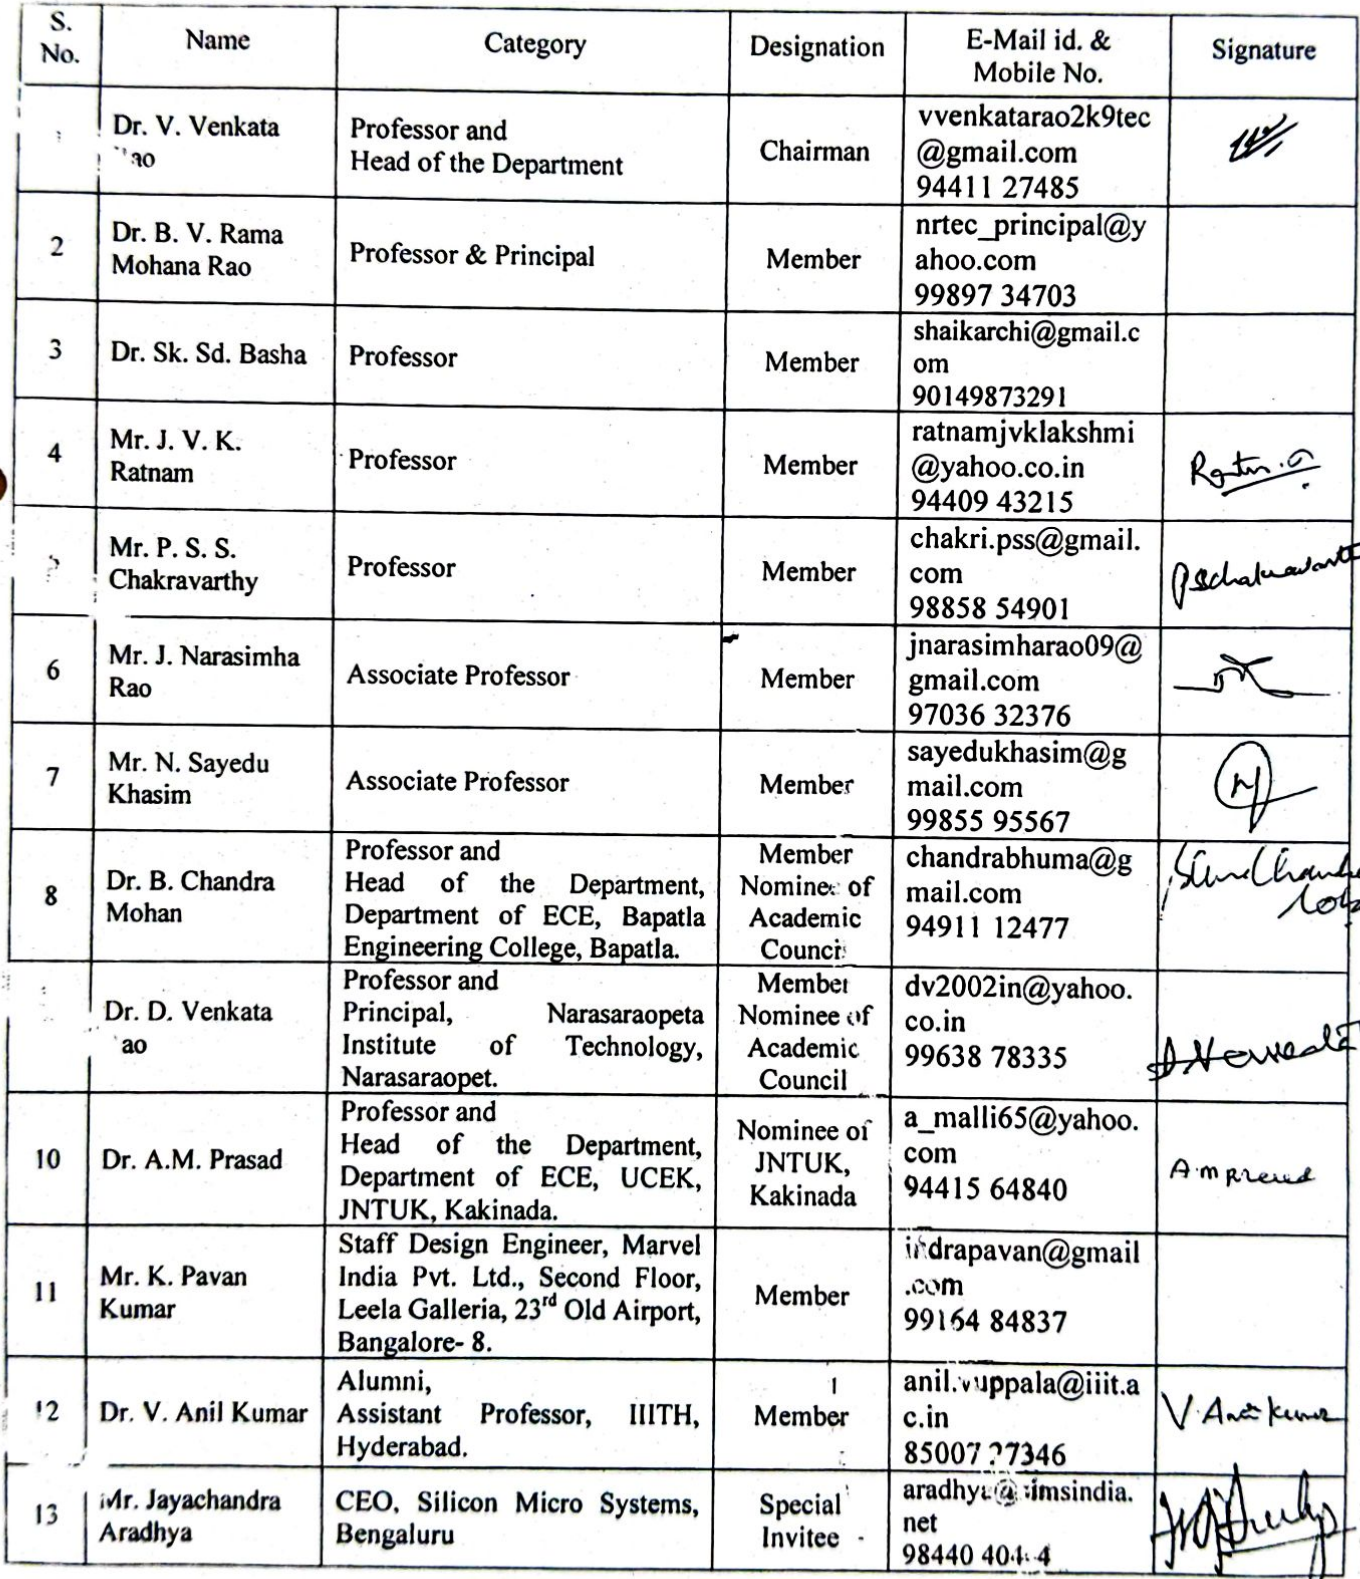 S. No. Name Category Designation E-Mail id. & Mobile No. Signature
Dr. V. Venkata
Professor and
Head of the Department
Chairman
vvenkatarao2k9tec
@gmail.com
94411 27485
2
Dr. B. V. Rama
Mohana Rao
Professor & Principal
Member
nrtec_principal@y
ahoo.com
99897 34703
3
Dr. Sk. Sd. Basha
Professor
Member
shaikarchi@gmail.c
om
90149873291
4
Mr. J. V. K.
Ratnam
Professor
Member
ratnamjvklakshmi
@yahoo.co.in
94409 43215
Mr. P. S. S.
Chakravarthy
Professor
Member
chakri.pss@gmail.
com
98858 54901
6
Mr. J. Narasimha
Rao
Associate Professor
Member
jnarasimharao09@
gmail.com
97036 32376
7
Mr. N. Sayedu
Khasim
Associate Professor
Member
sayedukhasim@g
mail.com
99855 95567
8
Dr. B. Chandra
Mohan
Professor and
Head of the Department,
Department of ECE, Bapatla
Engineering College, Bapatla.
Member
Nominee of
Academic
Council
chandrabhuma@g
mail.com
94911 12477
Dr. D. Venkata
Professor and
Principal, Narasaraopeta
Institute of Technology,
Narasaraopet.
Member
Nominee of
Academic
Council
dv2002in@yahoo.
co.in
99638 78335
10
Dr. A.M. Prasad
Professor and
Head of the Department,
Department of ECE, UCEK,
JNTUK, Kakinada.
Nominee of
JNTUK,
Kakinada
a_malli65@yahoo.
com
94415 64840
11
Mr. K. Pavan
Kumar
Staff Design Engineer, Marvel
India Pvt. Ltd., Second Floor,
Leela Galleria, 23rd Old Airport,
Bangalore- 8.
Member
indrapavan@gmail
.com
99164 84837
12
Dr. V. Anil Kumar
Alumni,
Assistant Professor, IIITH,
Hyderabad.
Member
anil.vuppala@iiit.a
c.in
V. Anil Kumar
13
Mr. Jayachandra
Aradhya
CEO, Silicon Micro Systems,
Bengaluru
Special
Invitee
net
98440